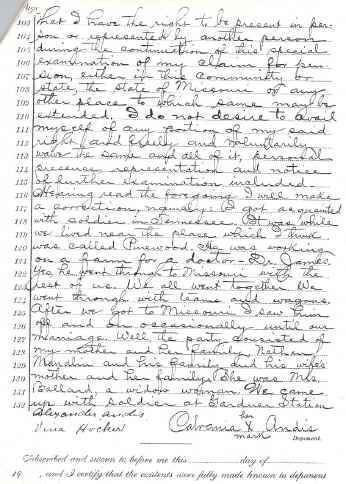 103 that I have the right to be present in per-
104 son or represented by another person
105 during the continuation of this special
106 examination of my claim for pen-
107 sion either in this community or
108 state, the State of Missouri or any
109 other place to which same may be
110 extended. I do not desire to avail
111 myself of any portion of my said
112 right and freely and voluntarily
113 waive the same and all of it, personal
114 presence, representation and notice
115 of further examination included.
116 Hearing read the foregoing I will make
117 a correction, namely: I got acquainted
118 with soldier in Tennessee. It was while
119 we lived near the place which I think
120 was called Pinewood. He was working
121 on a farm for a doctor - Dr. James.
122 Yes, he went through to Missouri with the
123 rest of us. We all went together. We
124 went through with teams and wagons.
125 After we got to Missouri I saw him
126 off and on occasionally until our
127 marriage. Well the party consisted of
128 my mother and her family, Nathan
129 and his family and his wife's
130 mother and her family. She was Mrs.
131 Ballard, a widow woman. We came
132 up with soldier at Gardner Station
Alexander Andis her
Hocker X Andis
mark Deponent.
Subscribed and sworn to before me this day of
19 , and I certify that the contents were fully made known to deponent